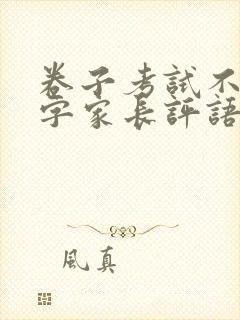 卷子考試不
字家長評語
風真